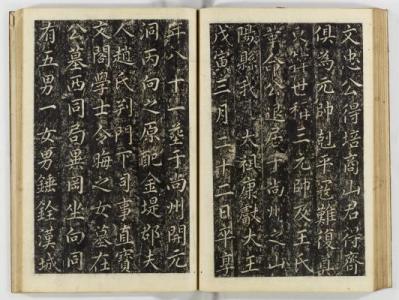 文忠公得培商山君得齊
俱為元帥剋平難復
京世稱三元帥及王氏
革命公退居于尚州之山
陽縣我 太祖康獻大王
戊寅三月二十二日卒享
年八十一葬于尚州開元
洞丙向之原配金堤郡夫
人趙氏判門下司事直寶
文閣學士令晦之女墓在
公墓西同局異岡坐向同
有五男一女男錘銓漢城